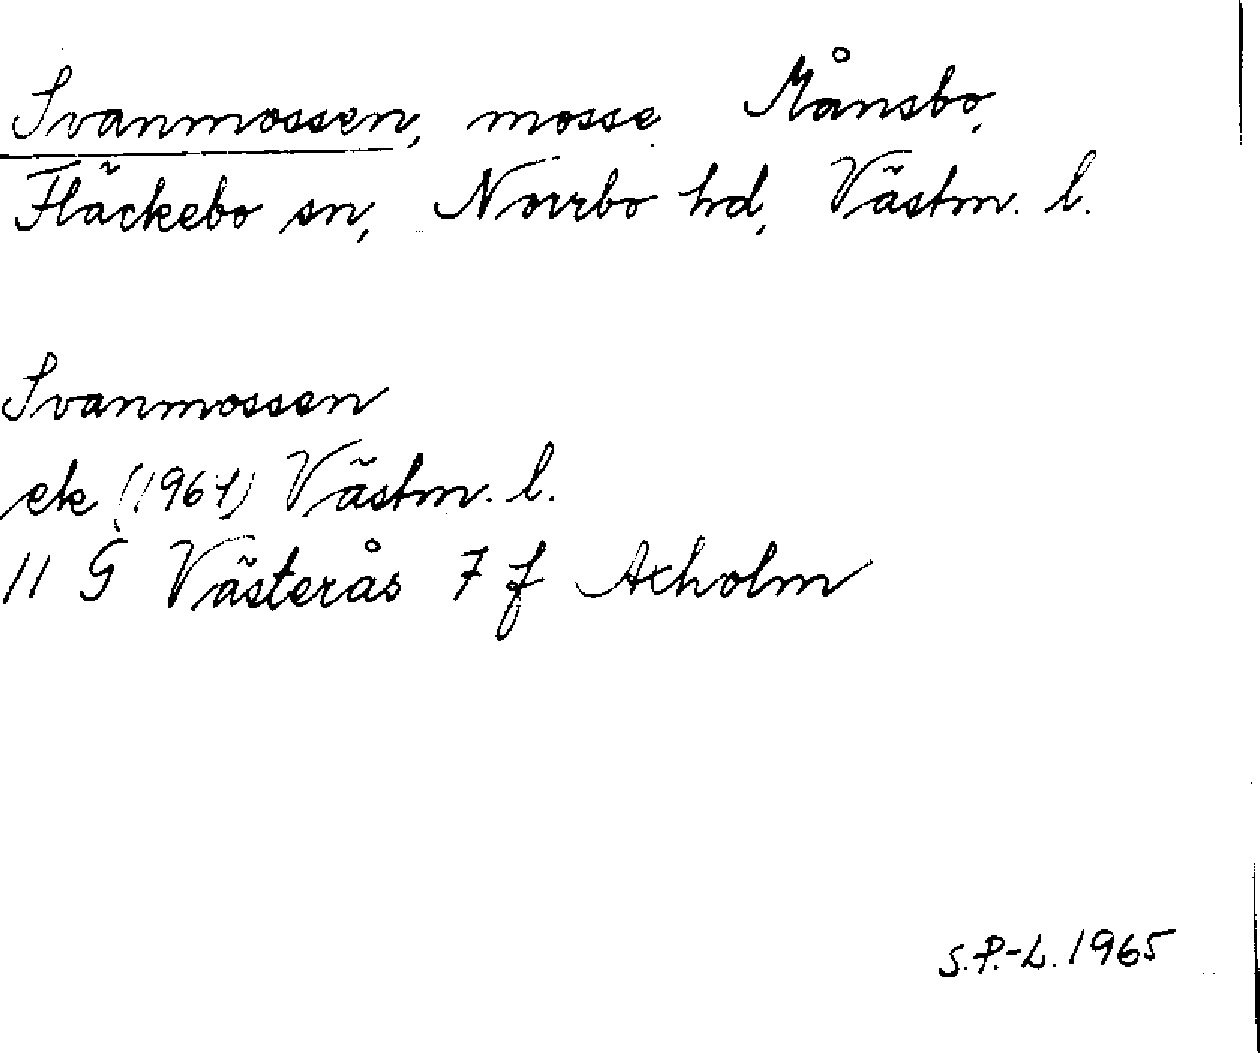 Svanmossen, mosse Månsbo,
Fläckebo sn, Norrbo hd, Västm. l.
Svanmossen
ek (1964) Västm. l.
11 G Västerås 7 f Axholm
S.P.-L. 1965